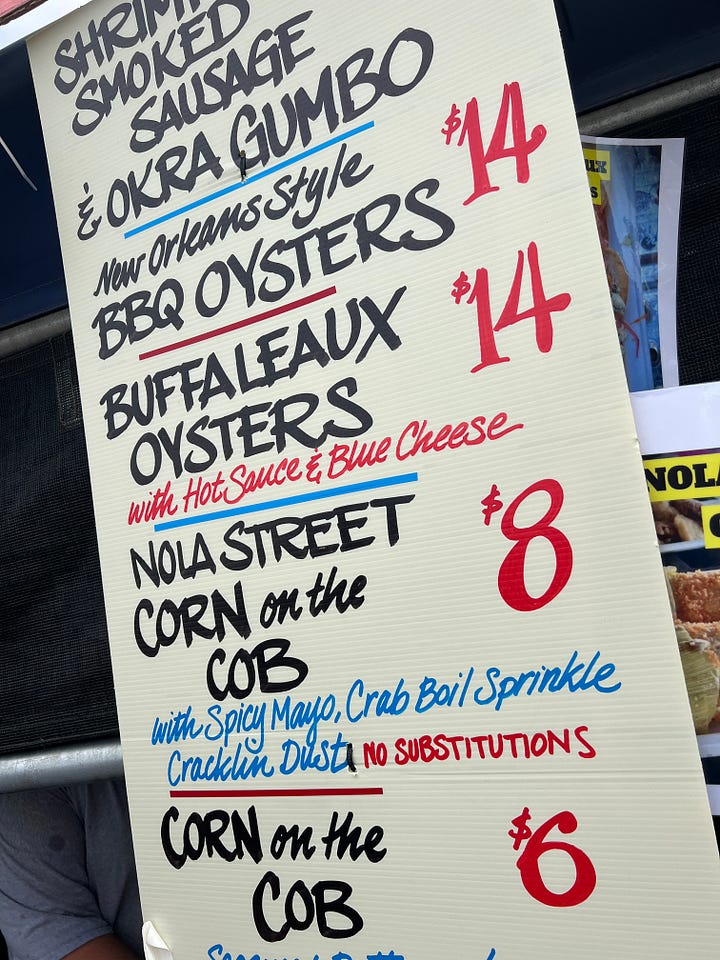 SHRIMP
SMOKED
SAUSAGE
& OKRA GUMBO
New Orleans Style
BBQ OYSTERS $14
BUFFALEAUX
OYSTERS $14
with Hot Sauce & Blue Cheese
NOLA STREET
CORN on the
COB $8
with Spicy Mayo, Crab Boil Sprinkle
Cracklin Dust, NO SUBSTITUTIONS
CORN on the
COB $6
NOLA